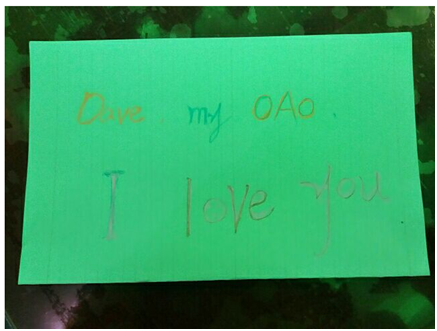 Dave my OAO.
I love you